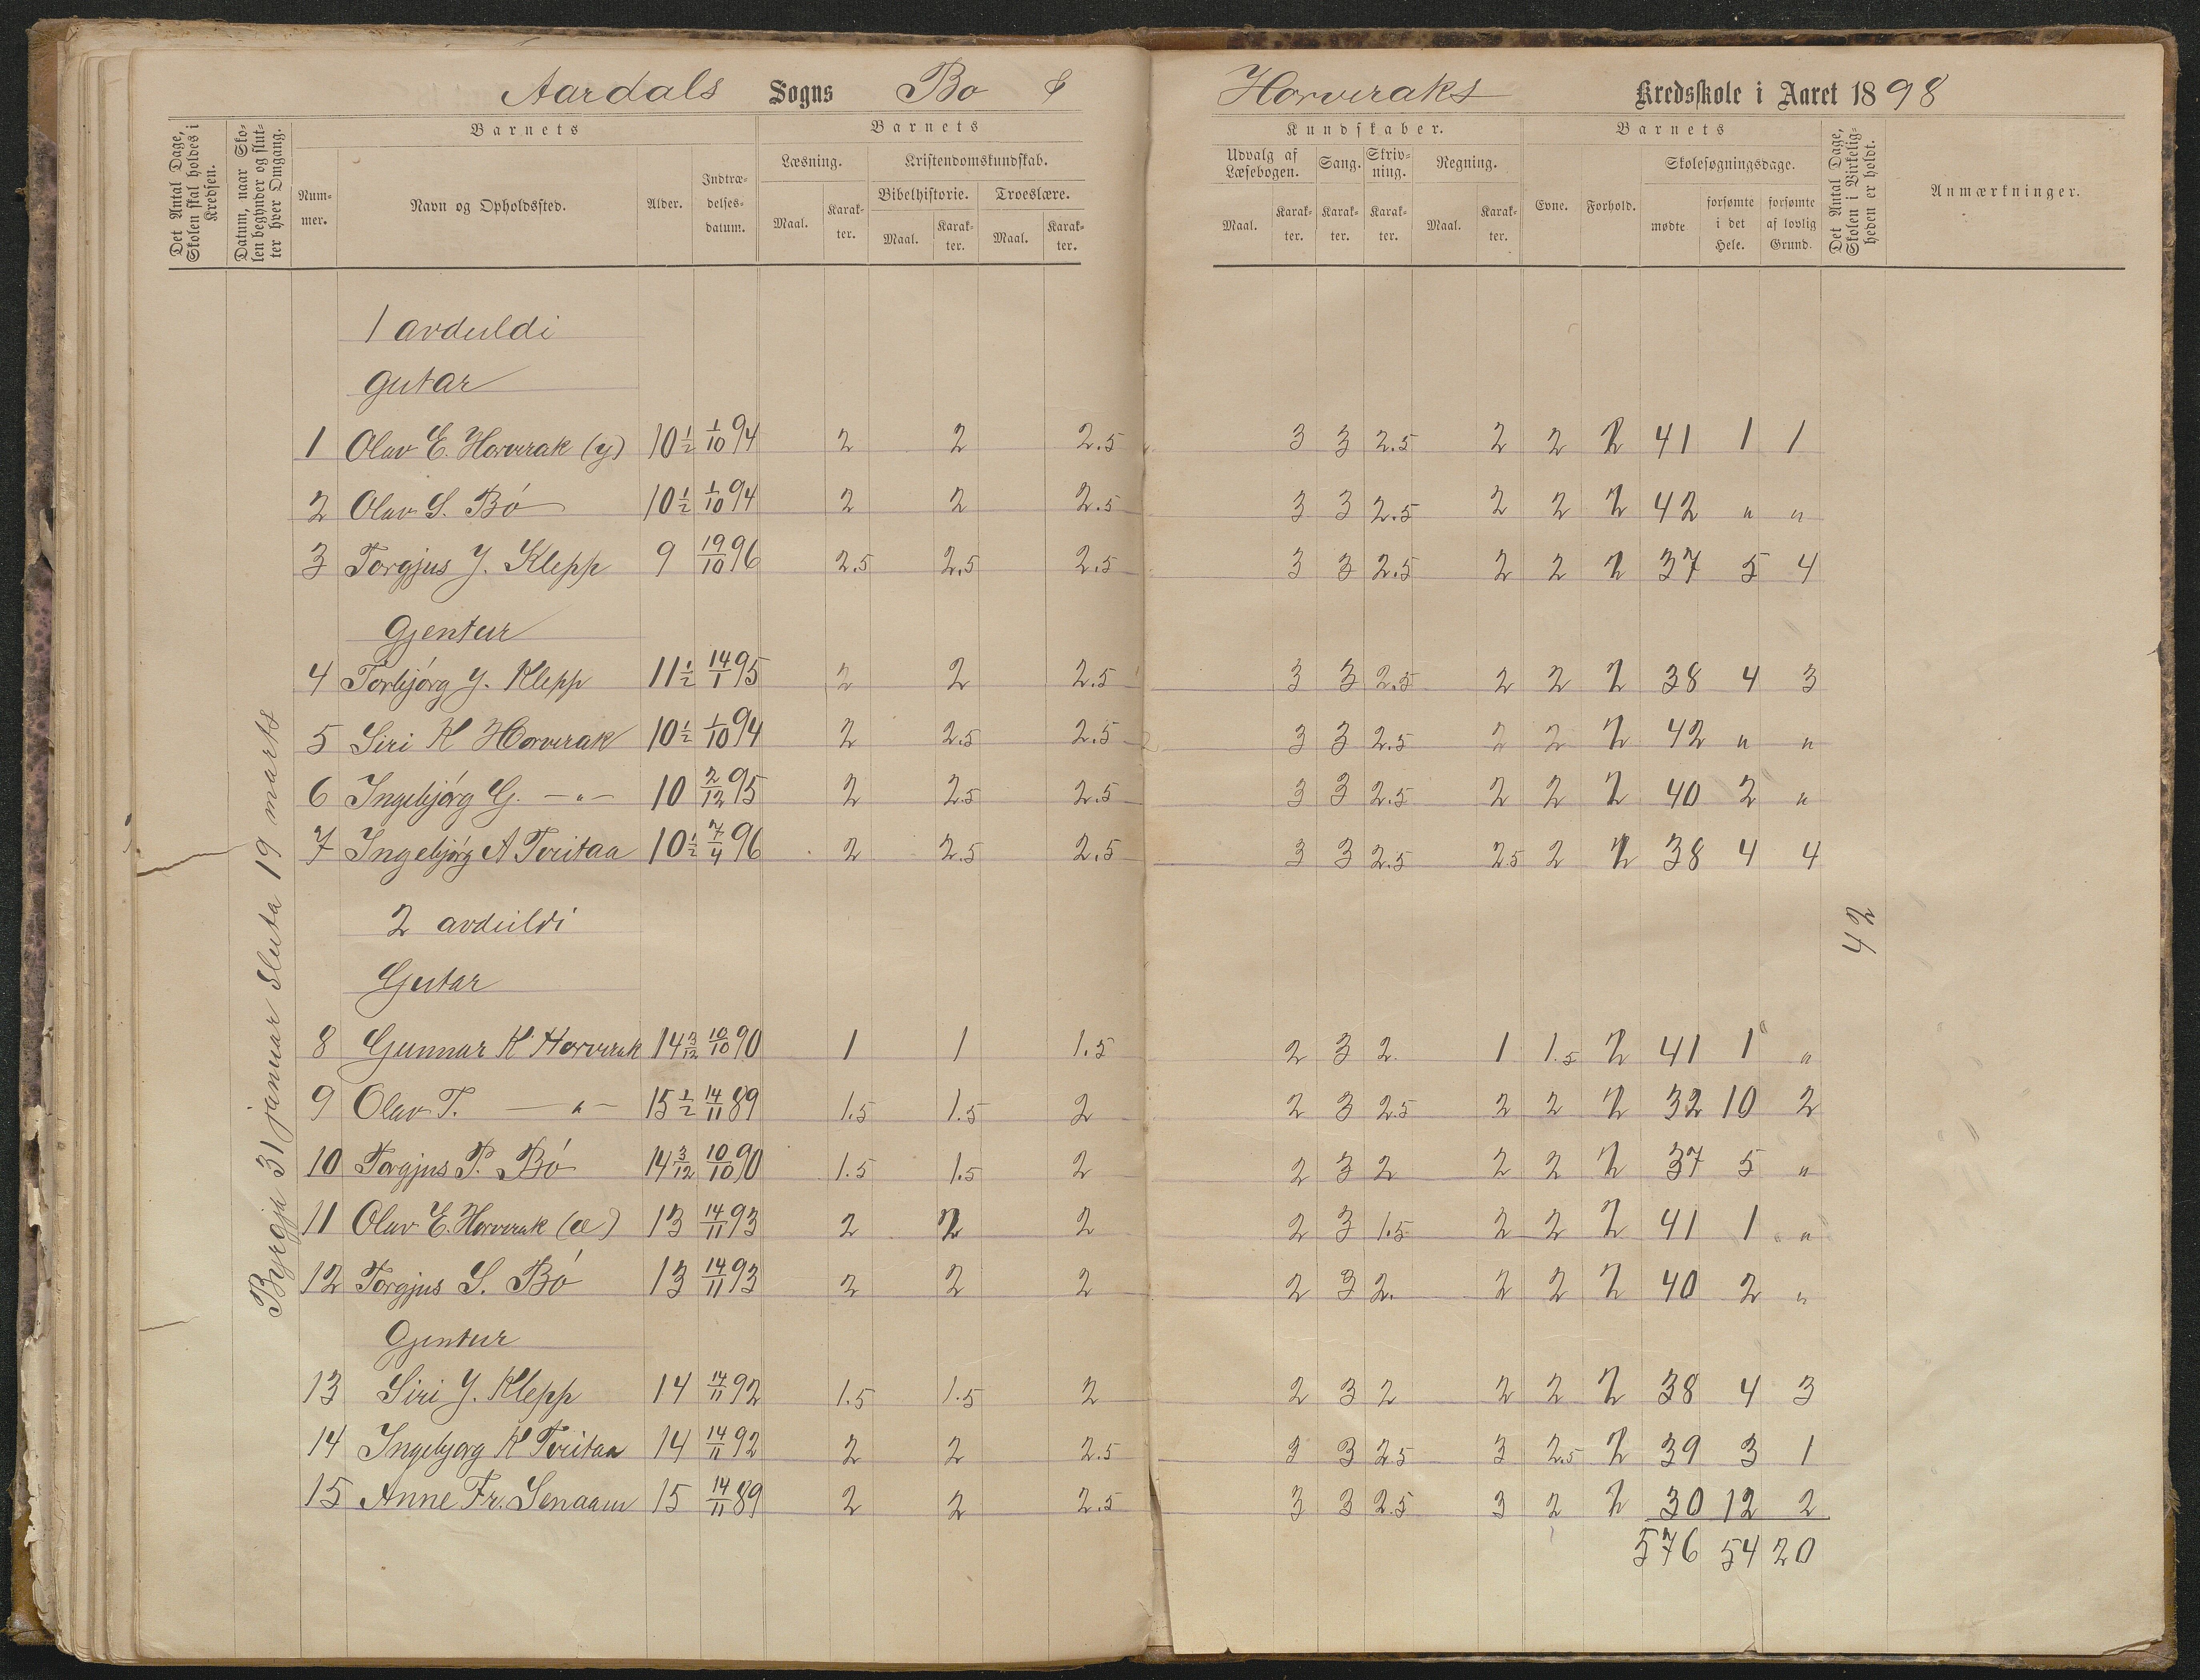 Aardals Sogns Bo & Horveraks Kredsskole i Aaret 1898
Det Antal Dage, Skolen skal holdes i Kredsen.
Datum, naar Skolen begynder og slutter hver Omgang.
Barnets
Nummer.
Navn og Opholdssted.
Alder.
Indtrædelsesdatum.
Barnets
Læsning.
Maal.
Karakter.
Kristendomskundskab.
Bibelhistorie.
Maal.
Karakter.
Troeslære.
Maal.
Karakter.
Kundskaber.
Udvalg af Læsebogen.
Maal.
Karakter.
Sang.
Karakter.
Skrivning.
Karakter.
Regning.
Maal.
Karakter.
Barnets
Evne.
Forhold.
Skolesøgningsdage.
mødte
forsømte i det Hele.
forsømte af lovlig Grund.
Det Antal Dage, Skolen i Virkeligheden er holdt.
Anmærkninger.
Byrgja 31 januar Sluta 19 marts
1 avdeildi
gutar
1 Olav E. Horverak (y) 10 1/2 1/10 94 2 2 2.5 3 3 2.5 2 2 2 41 1 1
2 Olav S. Bó 10 1/2 1/10 94 2 2 2.5 3 3 2.5 2 2 2 42 " "
3 Torgjus J. Klepp 9 19/10 96 2.5 2.5 2.5 3 3 2.5 2 2 2 37 5 4
Gjentur
4 Torbjórg J. Klepp 11 1/2 14/1 95 2 2 2.5 3 3 2.5 2 2 2 38 4 3
5 Siri K Horverak 10 1/2 1/10 94 2 2.5 2.5 3 3 2.5 2 2 2 42 " "
6 Ingebjórg G. -"- 10 2/12 95 2 2.5 2.5 3 3 2.5 2 2 2 40 2 "
7 Ingebjórg A Tveitaa 10 1/2 7/4 96 2 2.5 2.5 3 3 2.5 2.5 2 2 38 4 4
42
2 avdeildi
Gutar
8 Gunnar K Horverak 14 3/12 10/10 90 1 1 1.5 2 3 2 1 1.5 2 41 1 "
9 Olav T. -"- 15 1/2 14/11 89 1.5 1.5 2 2 3 2.5 2 2 2 32 10 2
10 Torgjus P. Bó 14 3/12 10/10 90 1.5 1.5 2 2 3 2 2 2 2 37 5 "
11 Olav E. Horverak (e) 13 14/11 93 2 2 2 2 3 1.5 2 2 2 41 1 "
12 Torgjus S. Bó 13 14/11 93 2 2 2 2 3 2. 2 2 2 40 2 "
Gjentur
13 Siri J. Klepp 14 14/11 92 1.5 1.5 2 2 3 2 2 2 2 38 4 3
14 Ingebjorg K Tveitaa 14 14/11 92 2 2 2.5 3 3 2.5 3 2.5 2 39 3 1
15 Anne Fr. Senaaen 15 14/11 89 2 2 2.5 3 3 2.5 3 2 2 30 12 2
576 54 20